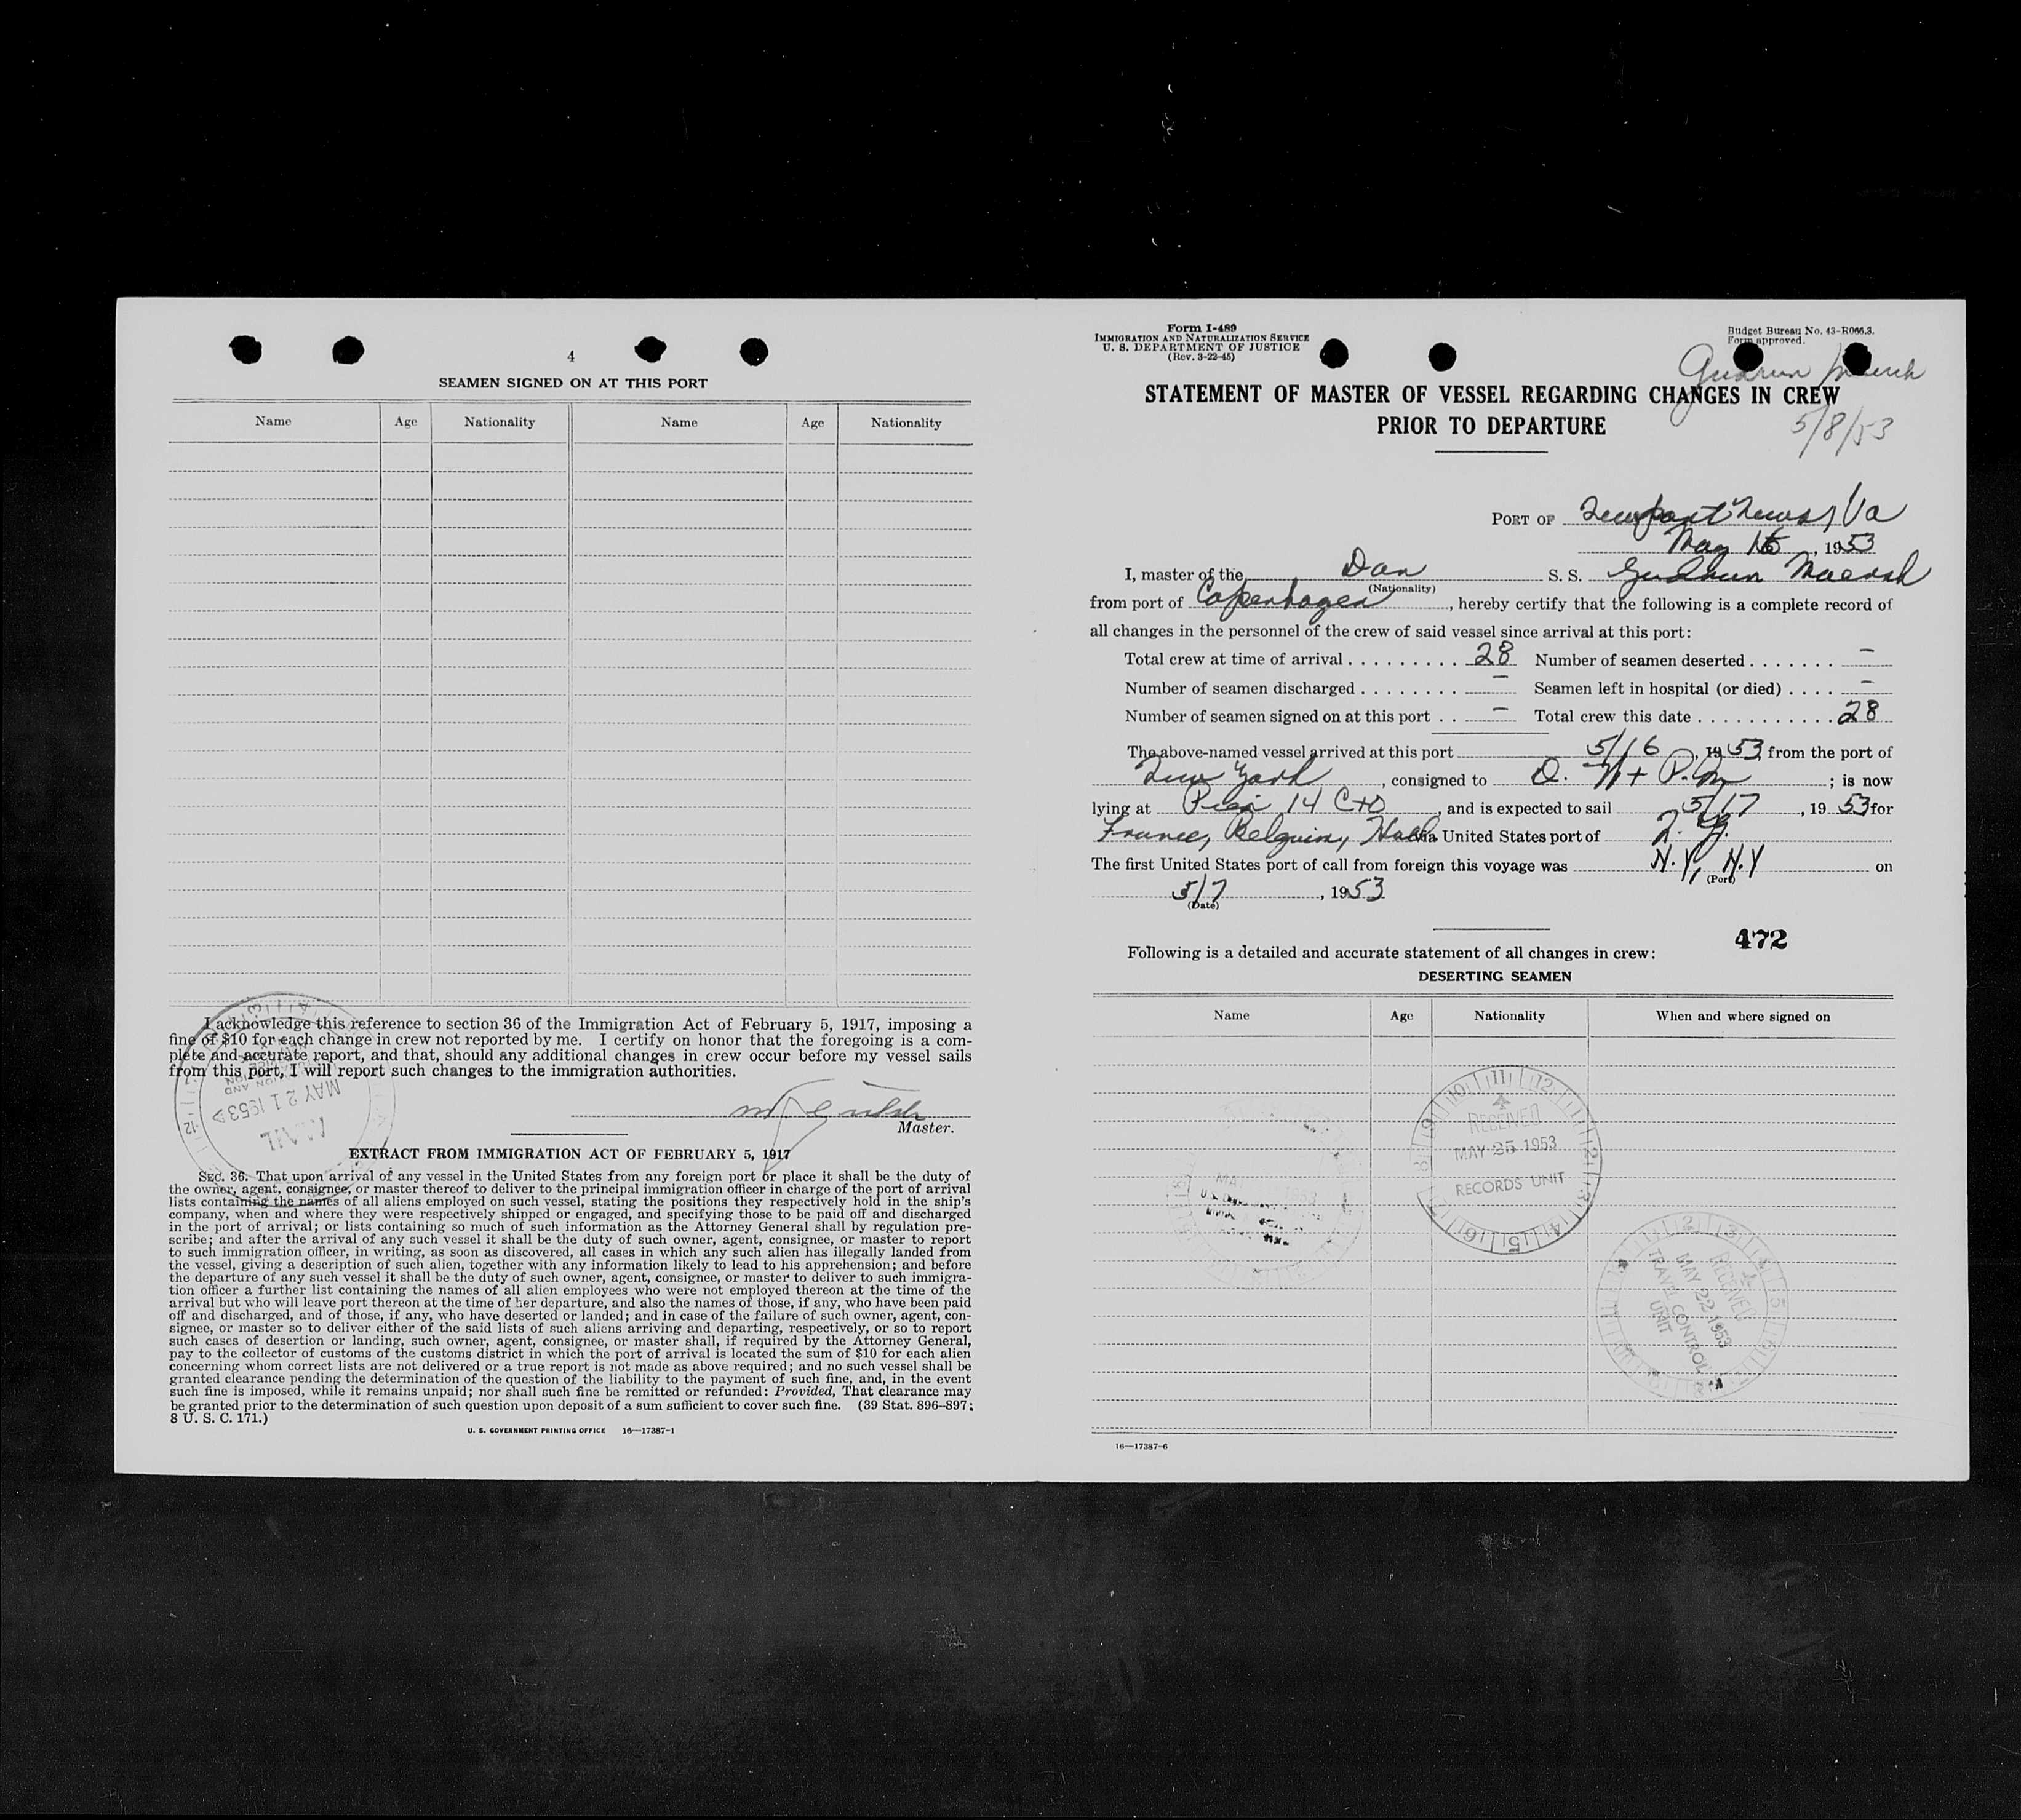 4
SEAMEN SIGNED ON AT THIS PORT
Name Age Nationality Name Age Nationality
I acknowledge this reference to section 36 of the Immigration Act of February 5, 1917, imposing a
fine of $10 for each change in crew not reported by me. I certify on honor that the foregoing is a com-
plete and accurate report, and that, should any additional changes in crew occur before my vessel sails
from this port, I will report such changes to the immigration authorities.
MAY 21 1953
MAIL
Master.
EXTRACT FROM IMMIGRATION ACT OF FEBRUARY 5, 1917
SEC. 36. That upon arrival of any vessel in the United States from any foreign port or place it shall be the duty of
the owner, agent, consignee, or master thereof to deliver to the principal immigration officer in charge of the port of arrival
lists containing the names of all aliens employed on such vessel, stating the positions they respectively hold in the ship's
company, when and where they were respectively shipped or engaged, and specifying those to be paid off and discharged
in the port of arrival; or lists containing so much of such information as the Attorney General shall by regulation pre-
scribe; and after the arrival of any such vessel it shall be the duty of such owner, agent, consignee, or master to report
to such immigration officer, in writing, as soon as discovered, all cases in which any such alien has illegally landed from
the vessel, giving a description of such alien, together with any information likely to lead to his apprehension; and before
the departure of any such vessel it shall be the duty of such owner, agent, consignee, or master to deliver to such immigra-
tion officer a further list containing the names of all alien employees who were not employed thereon at the time of the
arrival but who will leave port thereon at the time of her departure, and also the names of those, if any, who have been paid
off and discharged, and of those, if any, who have deserted or landed; and in case of the failure of such owner, agent, con-
signee, or master so to deliver either of the said lists of such aliens arriving and departing, respectively, or so to report
such cases of desertion or landing, such owner, agent, consignee, or master shall, if required by the Attorney General,
pay to the collector of customs of the customs district in which the port of arrival is located the sum of $10 for each alien
concerning whom correct lists are not delivered or a true report is not made as above required; and no such vessel shall be
granted clearance pending the determination of the question of the liability to the payment of such fine, and, in the event
such fine is imposed, while it remains unpaid; nor shall such fine be remitted or refunded: Provided, That clearance may
be granted prior to the determination of such question upon deposit of a sum sufficient to cover such fine. (39 Stat. 896–897;
8 U. S. C. 171.)
U. S. GOVERNMENT PRINTING OFFICE 16—17387-1
Form I-489
IMMIGRATION AND NATURALIZATION SERVICE
U. S. DEPARTMENT OF JUSTICE
(Rev. 3-22-45)
Budget Bureau No. 43-R066.3.
Form approved.
Gudrun Maersk
5/8/53
STATEMENT OF MASTER OF VESSEL REGARDING CHANGES IN CREW
PRIOR TO DEPARTURE
PORT OF Newport News, Va
May 16, 1953
I, master of the Dan S. S. Gudrun Maersk
(Nationality)
from port of Copenhagen, hereby certify that the following is a complete record of
all changes in the personnel of the crew of said vessel since arrival at this port:
Total crew at time of arrival . . . . . . . . . 28 Number of seamen deserted . . . . . . . –
Number of seamen discharged . . . . . . . . – Seamen left in hospital (or died) . . . . –
Number of seamen signed on at this port . . – Total crew this date . . . . . . . . . . . 28
The above-named vessel arrived at this port 5/16, 1953 from the port of
New York, consigned to D. N + P. M; is now
lying at Pier 14 C+O, and is expected to sail 5/17, 1953 for
France, Belguim, Holl. via United States port of N. Y.
The first United States port of call from foreign this voyage was N. Y, N.Y on
(Port)
5/7, 1953
(Date)
472
Following is a detailed and accurate statement of all changes in crew:
DESERTING SEAMEN
Name Age Nationality When and where signed on
RECEIVED
MAY 25 1953
RECORDS UNIT
RECEIVED
MAY 22 1953
TRAVEL CONTROL
UNIT
16—17387-6